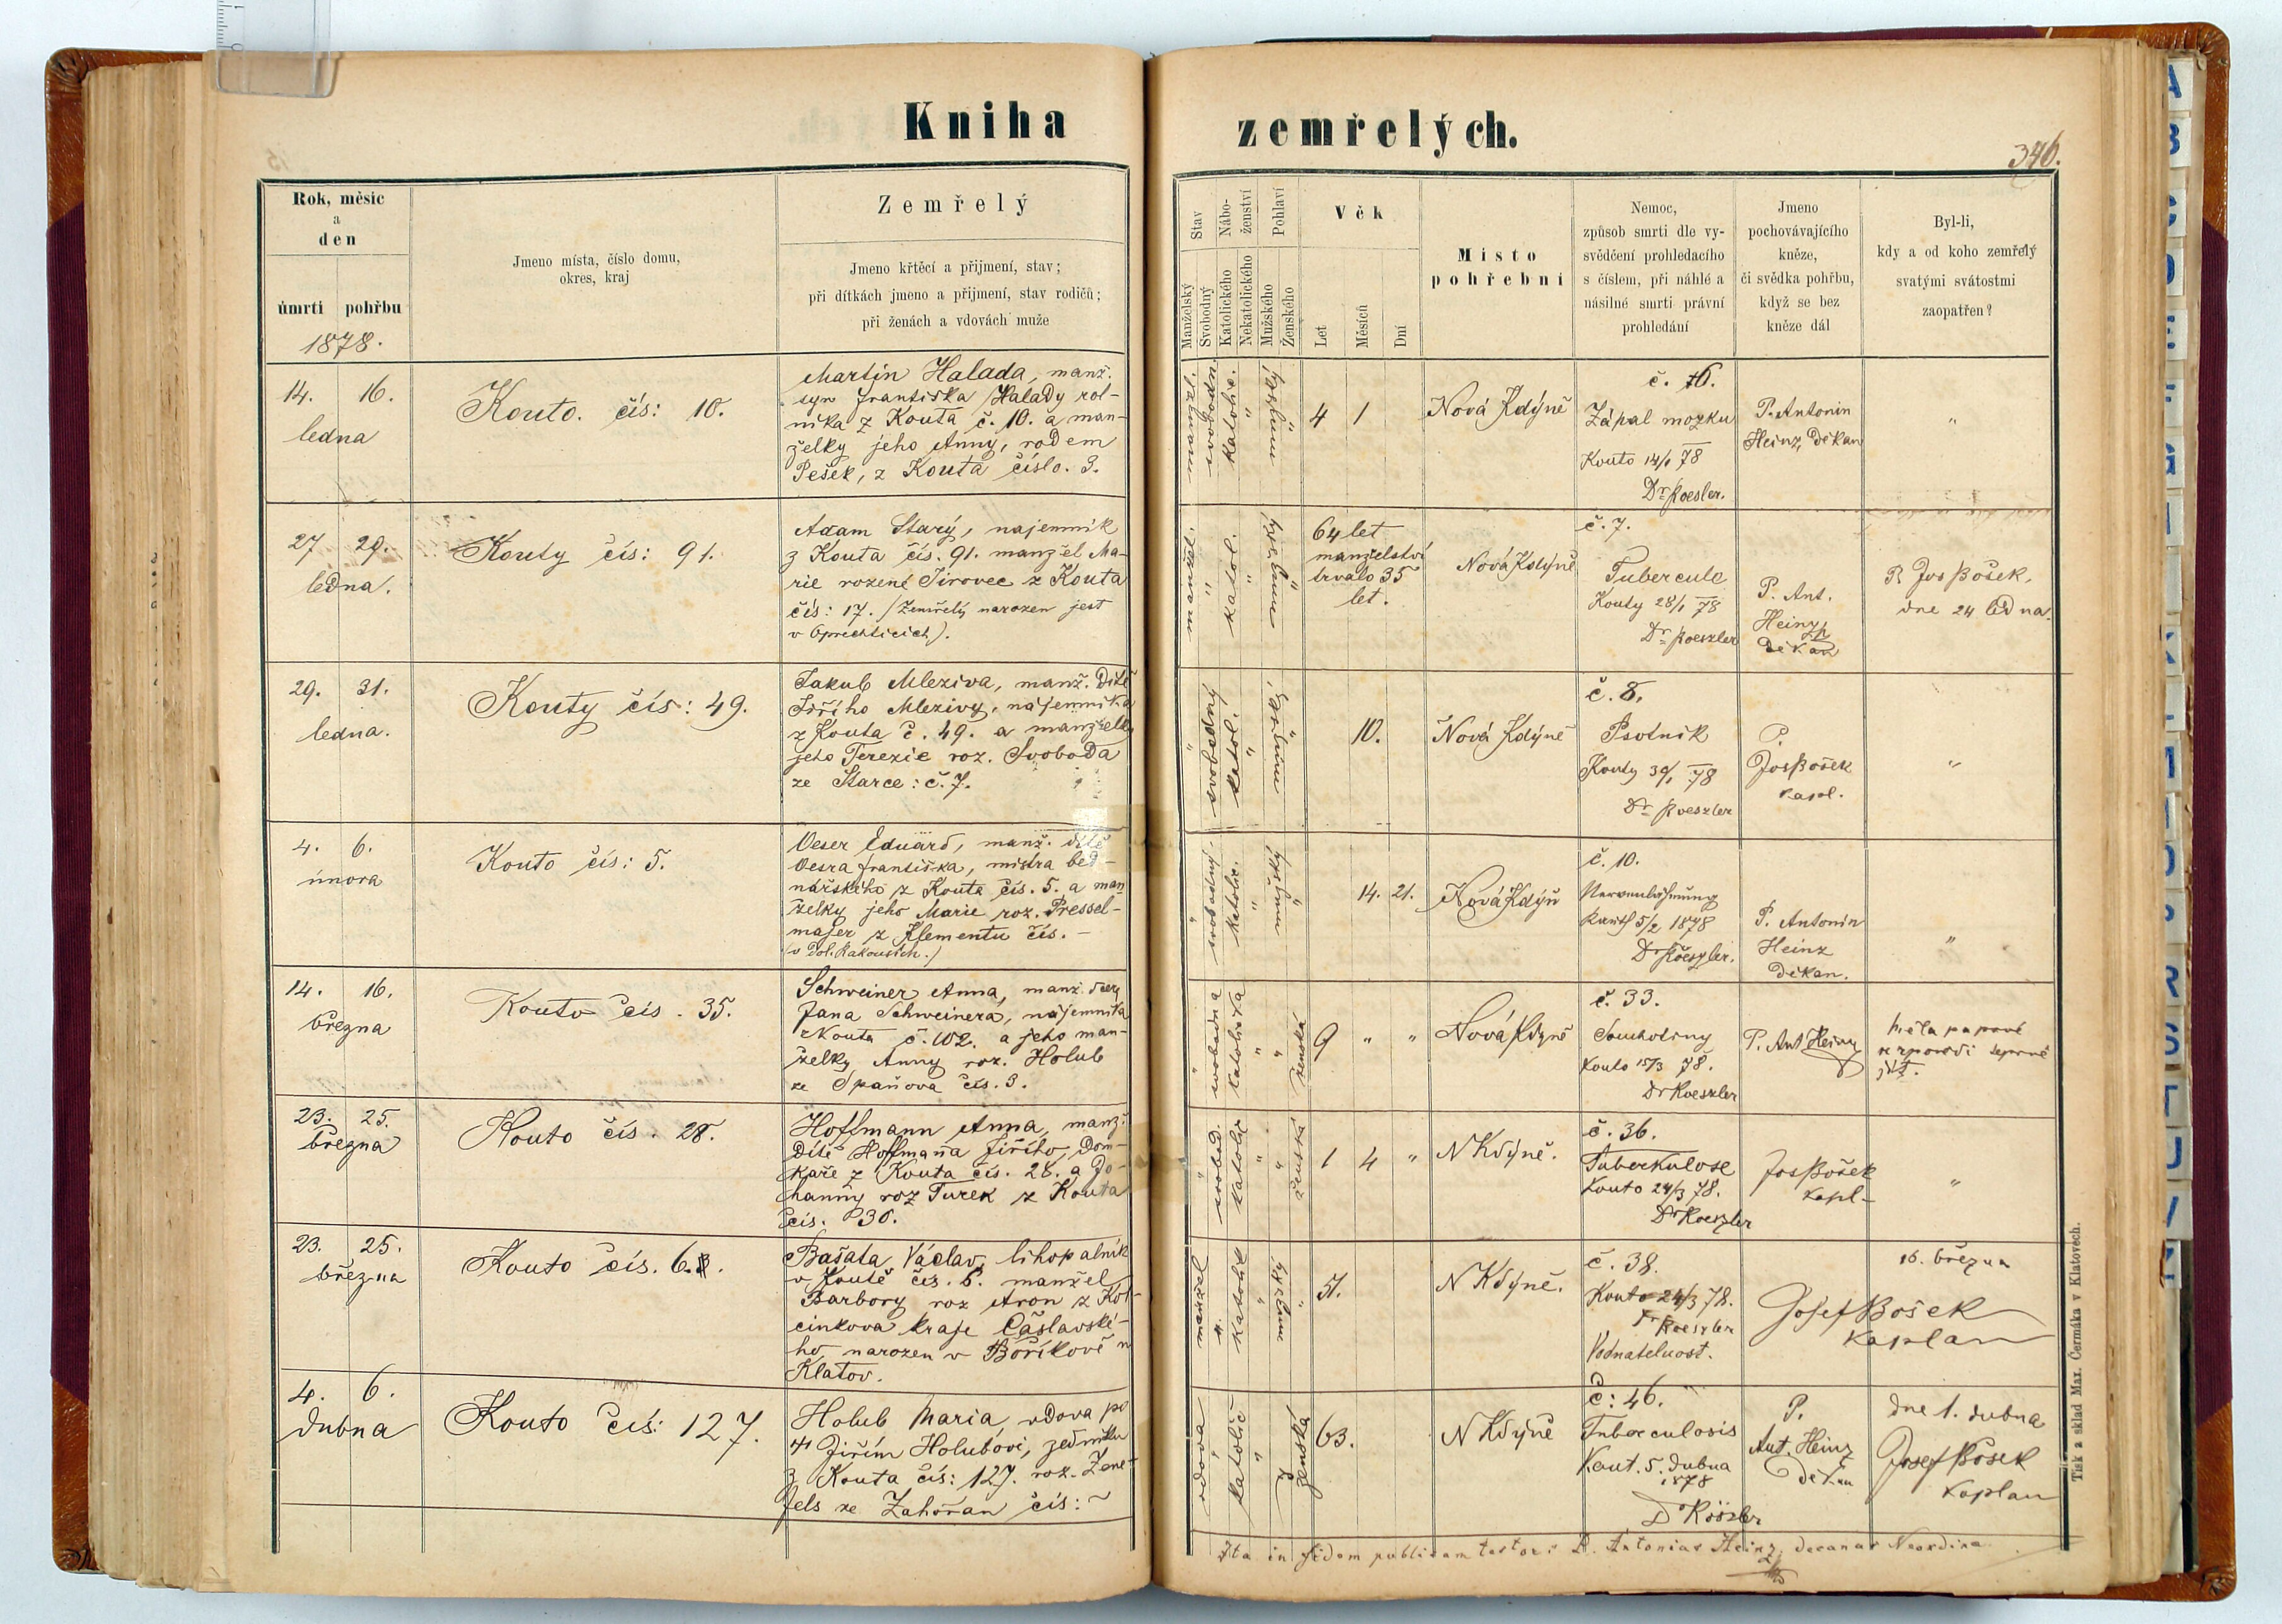 Kniha
zemřelých.
346.
Rok, měsíc
a
den
úmrtí pohřbu
1878.
Jmeno místa, číslo domu,
okres, kraj
Zemřelý
Jmeno křtěcí a přijmení, stav;
při dítkách jmeno a přijmení, stav rodičů;
při ženách a vdovách muže
Stav
Manželský
Svobodný
Nábo-
ženství
Katolického
Nekatolického
Pohlaví
Mužského
Ženského
Věk
Let
Měsíců
Dní
Místo
pohřební
Nemoc,
způsob smrti dle vy-
svědčení prohledacího
s číslem, při náhlé a
násilné smrti právní
prohledání
Jmeno
pochovávajícího
kněze,
či svědka pohřbu,
když se bez
kněze dál
Byl-li,
kdy a od koho zemřelý
svatými svátostmi
zaopatřen?
14. 16.
ledna
Kouto. čís: 10.
Martin Halada, manž.
syn Františka Halady rol-
níka z Kouta č. 10. a man-
želky jeho Anny, rodem
Pešek, z Kouta číslo. 3.
katolic.
4 1
Nová Kdýně
č. 16.
Zápal mozku
Kouto 14/1 78
Dr Roesler.
P. Antonin
Heinz, Děkan
"
27 29.
ledna.
Kouty čís: 91.
Adam Starý, najemník
z Kouta čís. 91. manžel Ma-
rie rozené Jirovec z Kouta
čís: 17. (Zemřelý narozen jest
v Oprechticích).
katol.
64 let
manželství
trvalo 35
let.
Nová Kdýně
č. 7.
Tubercule
Kouty 28/1 78
Dr Roeszler
P. Ant.
Heinz
děkan
P. Jos Bošek,
dne 24 ledna.
29. 31.
ledna.
Kouty čís: 49.
Jakub Mleziva, manž. Dítě
Jiřího Mlezivy, nájemníka
z Kouta č. 49. a manželky
jeho Terezie roz. Svoboda
ze Starce: č. 7.
svobodný
katol.
10.
Nová Kdýně
č. 8.
Psotník
Kouty 30/1 78
Dr Roeszler
P.
Jos Bošek
kapl.
"
4. 6.
února
Kouto čís: 5.
Oeser Eduard, manž. dítě
Oesra Františka, mistra bed-
nářského z Kouta čís. 5. a man
želky jeho Marie roz. Pressel-
majer z Klementu čís. -
(v Dol. Rakousích.)
svobodný
katolic.
14. 21.
Nová Kdýň
č. 10.
5/2 1878
Dr Röeszler.
P. Antonin
Heinz
děkan.
"
14. 16.
března
Kouto čís. 35.
Schweiner Anna, manž. dcera
Jana Schweinera, nájemníka
z Kouta č. 102. a jeho man-
želky Anny roz. Holub
ze Spaňova čís. 3.
svobodna
katolicka
ženská
9 " "
Nová Kdyně
č. 33.
Souchotiny
Kouto 15/3 78.
Dr Roeszler
P. Ant Heinz
měla
23. 25.
března
Kouto čís. 28.
Hoffmann Anna, manž.
Dítě Hoffmana Jiřího, Dom-
kaře z Kouta čís. 28. a Jo-
hanny roz Turek z Kouta
čís. 30.
svobod.
katolic
ženská
1 4 "
N Kdýně.
č. 36.
Tuberkulose
Kouto 24/3 78.
Dr Roeszler
Jos Bošek
kapl-
"
23. 25.
března
Kouto čís. 6.
Bašata Václav, lihopalník
v Koutě čís. 6. manžel
Barbory roz Aron z Kol-
cinkova kraje Čáslavské-
ho narozen v Boříkově u
Klatov.
manžel
katolic
51.
N Kdýně.
č. 38.
Kouto 24/3 78.
Dr Roeszler
Vodnatelnost.
Josef Bošek
kaplan
16. března
4. 6.
dubna
Kouto čís: 127.
Holub Maria, vdova po
† Jiřím Holubovi, zedníku
z Kouta čís: 127. roz. Žene-
fels ze Zahořan čís: ~
vdova
katolic
ženská
63.
N Kdýně
č: 46.
Tuberculosis
Kout. 5. dubna
1878
Dr Röszler
P.
Ant. Heinz
děkan
dne 1. dubna
Josef Bošek
kaplan
Ita in fidem publicam testor: P. Antonius Heinz, decanus Neogdina
Tisk a sklad Max. Čermáka v Klatovech.